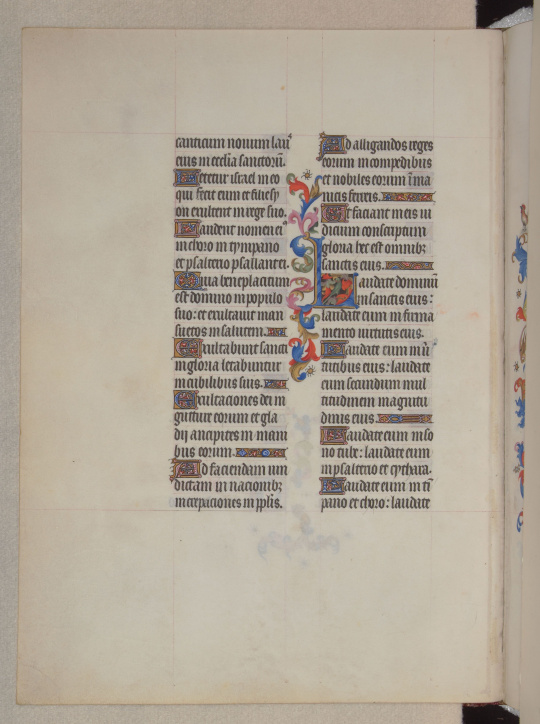 canticum nouum laus
eius in ecclia sanctoru.
Letetur israel in eo
qui fecit eum et filie sy
on exultent in rege suo.
Laudent nomen eius
in choro in tympano
et psalterio psallant ei.
Quia beneplacitum
est domino in populo
suo: et exultauit man
suetos in salutem.
Exultabunt sancti
in gloria letabuntur
in cubilibus suis.
Exultaciones dei in
gutture eorum et gla
dij ancipites in mani
bus eorum.
Ad faciendam uin
dictam in nacionib;
increpaciones in pplis.
Ad alligandos reges
eorum in compedibus
et nobiles eorum in ma
nicis ferreis.
Et faciant in eis iu
dicium conscriptum
gloria hec est omnib;
sanctis eius.
Laudate dominum
in sanctis eius:
laudate eum in firma
mento uirtutis eius.
Laudate eum in uir
tutibus eius: laudate
eum secundum mul
titudinem magnitu
dinis eius.
Laudate eum in so
no tube: laudate eum
in psalterio et cythara.
Laudate eum in tim
pano et choro: laudate